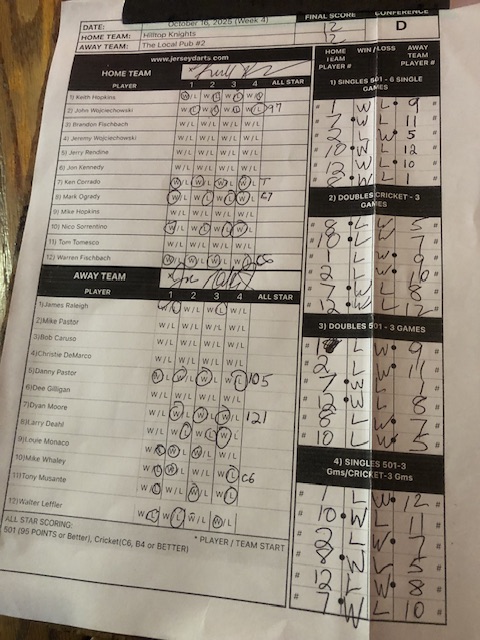 DATE: October 16, 2025 (Week 4)
HOME TEAM: Hilltop Knights
AWAY TEAM: The Local Pub #2
FINAL SCORE
12
CONFERENCE
D
www.jerseydarts.com
HOME TEAM
PLAYER 1 2 3 4 ALL STAR
1) Keith Hopkins W/L W/L W/L W/L
2) John Wojciechowski W/L W/L W/L W/L 97
3) Brandon Fischbach W/L W/L W/L W/L
4) Jeremy Wojciechowski W/L W/L W/L W/L
5) Jerry Rendine W/L W/L W/L W/L
6) Jon Kennedy W/L W/L W/L W/L
7) Ken Corrado W/L W/L W/L W/L T
8) Mark Ogrady W/L W/L W/L W/L
9) Mike Hopkins W/L W/L W/L W/L
10) Nico Sorrentino W/L W/L W/L W/L
11) Tom Tomesco W/L W/L W/L W/L
12) Warren Fischbach W/L W/L W/L W/L C6
AWAY TEAM
PLAYER 1 2 3 4 ALL STAR
1)James Raleigh W/L W/L W/L W/L
2)Mike Pastor W/L W/L W/L W/L
3)Bob Caruso W/L W/L W/L W/L
4)Christie DeMarco W/L W/L W/L W/L
5)Danny Pastor W/L W/L W/L W/L 105
6)Dee Gilligan W/L W/L W/L W/L
7)Dyan Moore W/L W/L W/L W/L 121
8)Larry Deahl W/L W/L W/L W/L
9)Louie Monaco W/L W/L W/L W/L
10)Mike Whaley W/L W/L W/L W/L
11)Tony Musante W/L W/L W/L W/L C6
12)Walter Leffler W/L W/L W/L W/L
ALL STAR SCORING:
* PLAYER / TEAM START
501 (95 POINTS or Better), Cricket(C6, B4 or BETTER)
HOME TEAM PLAYER # WIN / LOSS AWAY TEAM PLAYER #
1) SINGLES 501 - 6 SINGLE GAMES
# 1 W L 9 #
# 7 W L 11 #
# 2 L W 5 #
# 10 W L 12 #
# 12 W L 10 #
# 8 W L 1 #
2) DOUBLES CRICKET - 3 GAMES
# 8 L W 5 #
# 10 L W 7 #
# 1 L W 9 #
# 2 L W 10 #
# 7 W L 8 #
# 12 W L 12 #
3) DOUBLES 501 - 3 GAMES
# L W 9 #
# 2 L W 11 #
# 7 W L 1 #
# 12 W L 8 #
# 8 L W 7 #
# 10 L W 5 #
4) SINGLES 501-3 Gms/CRICKET-3 Gms
# 1 L W 12 #
# 10 W L 11 #
# 2 L W 7 #
# 8 W L 5 #
# 12 L W 8 #
# 7 W L 10 #